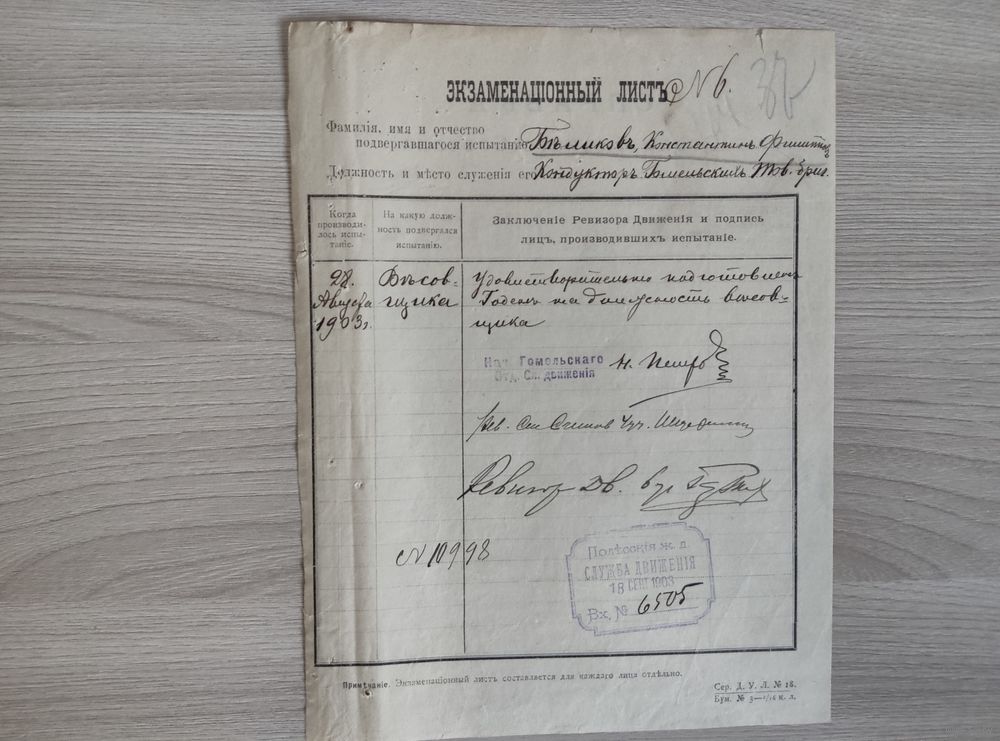 ЭКЗАМЕНАЦІОННЫЙ ЛИСТЪ № 6.
Фамилія, имя и отчество
подвергавшагося испытанію Бѣликовъ, Константинъ
Должность и мѣсто служенія его Кондукторъ Гомельскихъ Тов. бриг.
Когда производи-лось испы-таніе.
На какую долж-ность подвергался испытанію.
Заключеніе Ревизора Движенія и подпись
лицъ, производившихъ испытаніе.
28.
Августа
1903 г.
Вѣсов-
щика
Удовлетворительно подготовленъ
Годенъ на должность вѣсов-
щика
Нач. Гомельскаго
Отд. Сл. движенія
Рев.
Ревизор Дв.
№ 10998
Полѣсскія ж. д.
СЛУЖБА ДВИЖЕНІЯ
18 СЕНТ 1903
Вх. № 6505
Примѣчаніе. Экзаменаціонный листъ составляется для каждаго лица отдѣльно.
Сер. Д. У. Л. № 18.